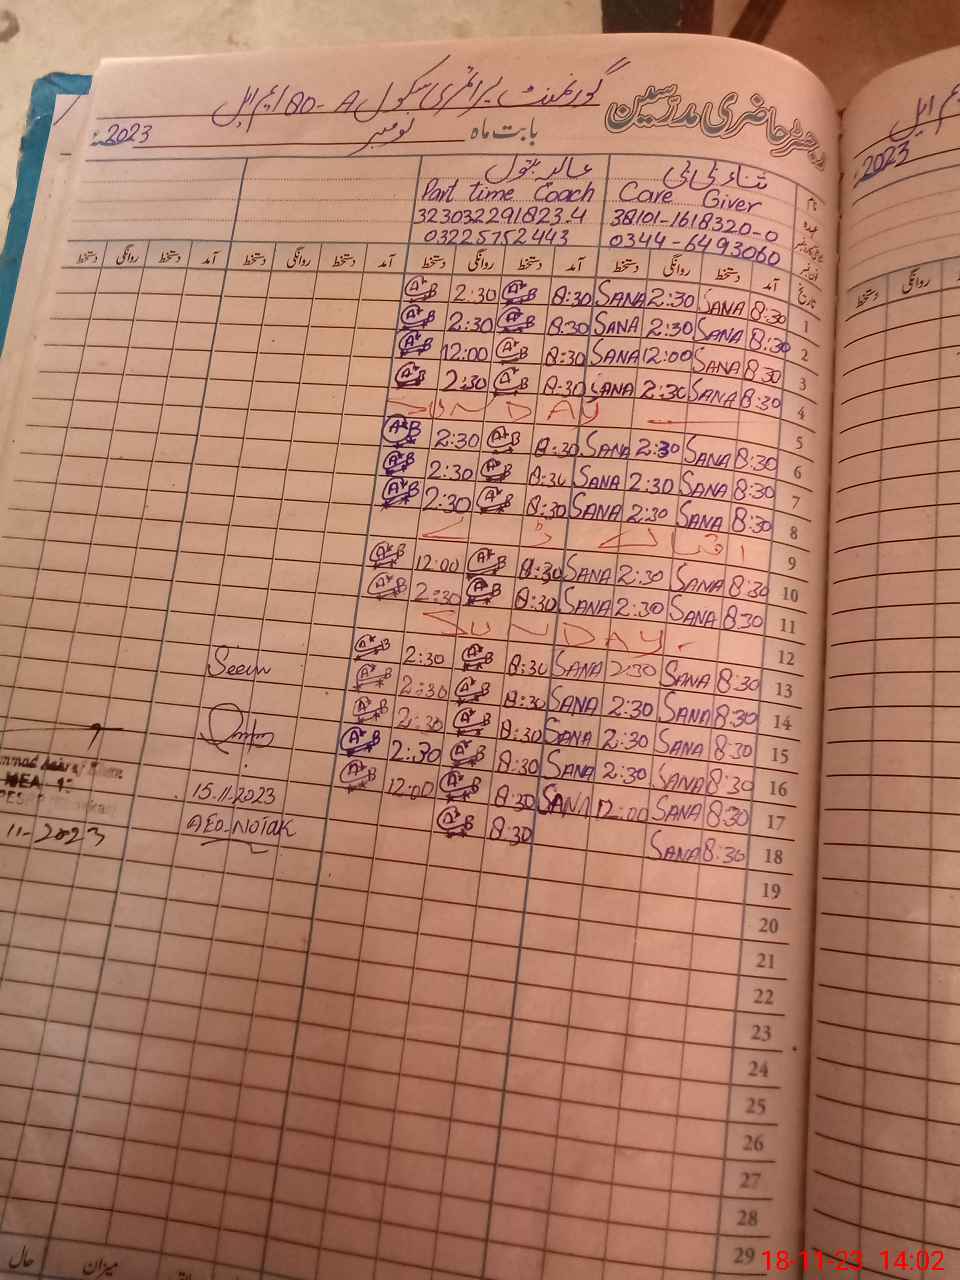 رجسٹر حاضری مدرسین
گورنمنٹ پرائمری سکول 80-A ایم ایل
بابت ماہ نومبر 2023ء
نام ثناء بی بی
Care Giver Part time Coach
38101-1618320-0 323032291823-4
0344-6493060 03225752443
تاریخ آمد دستخط روانگی دستخط آمد دستخط روانگی دستخط آمد دستخط روانگی دستخط آمد دستخط روانگی دستخط
1 8:30 SANA 2:30 SANA 8:30 A*B 2:30 A*B
2 8:30 SANA 2:30 SANA 8:30 A*B 2:30 A*B
3 8:30 SANA 12:00 SANA 8:30 A*B 12:00 A*B
4 8:30 SANA 2:30 SANA 8:30 A*B 2:30 A*B
5 SUNDAY
6 8:30 SANA 2:30 SANA 8:30 A*B 2:30 A*B
7 8:30 SANA 2:30 SANA 8:30 A*B 2:30 A*B
8 8:30 SANA 2:30 SANA 8:30 A*B 2:30 A*B
9
10 8:30 SANA 2:30 SANA 8:30 A*B 12:00 A*B
11 8:30 SANA 2:30 SANA 8:30 A*B 2:30 A*B
12 SUNDAY
13 8:30 SANA 2:30 SANA 8:30 A*B 2:30 A*B
14 8:30 SANA 2:30 SANA 8:30 A*B 2:30 A*B
15 8:30 SANA 2:30 SANA 8:30 A*B 2:30 A*B
16 8:30 SANA 2:30 SANA 8:30 A*B 2:30 A*B
17 8:30 SANA 12:00 SANA 8:30 A*B 12:00 A*B
18 8:30 SANA 8:30 A*B
Seen
15.11.2023
AEO-NOTAK
11-2023
19
20
21
22
23
24
25
26
27
28
29
میزان
حال
ایم ایل
2023
روانگی دستخط
18-11-23 14:02